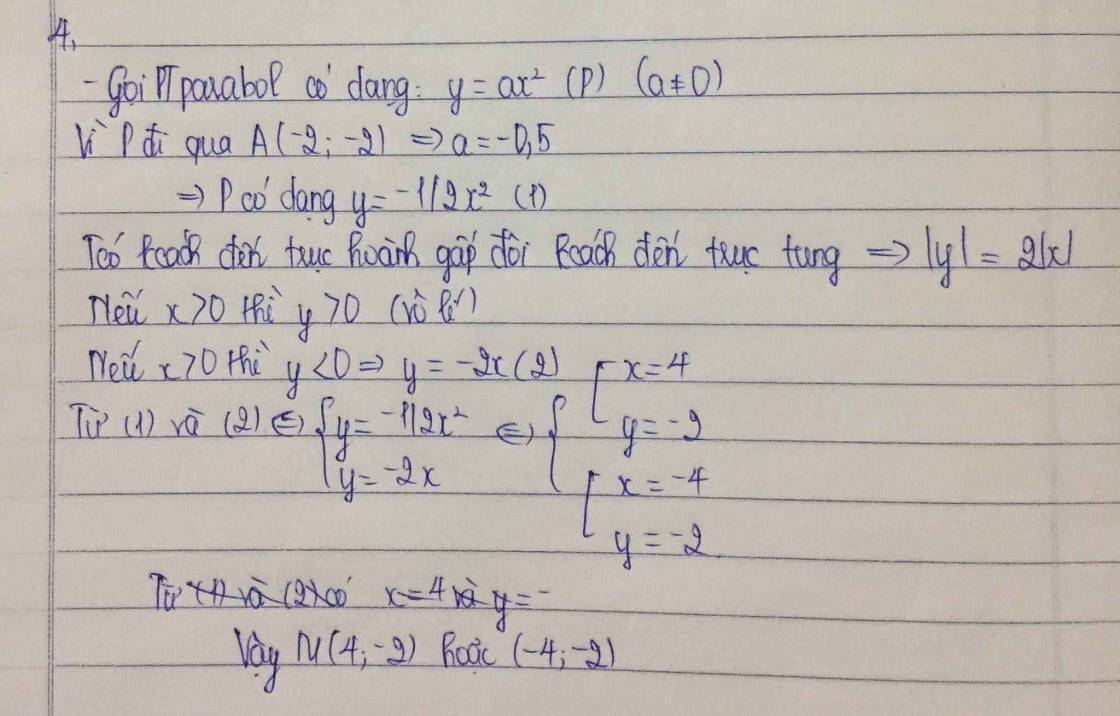 4,
- Gọi PT parabol có dạng: y = ax² (P) (a≠0)
Vì P đi qua A(-2; -2) => a = -0,5
=> P có dạng y = -1/2x² (1)
Tcó kcách đến trục hoành gấp đôi kcách đến trục tung => |y| = 2|x|
Nếu x>0 thì y>0 (vô lí)
Nếu x>0 thì y<0 => y = -2x (2)
Từ (1) và (2) <=> { y = -1/2x² y = -2x <=> { [ x=4 y=-2 [ x=-4 y=-2
Từ (1) và (2) có x=4 và y=-
Vậy N(4;-2) hoặc (-4;-2)